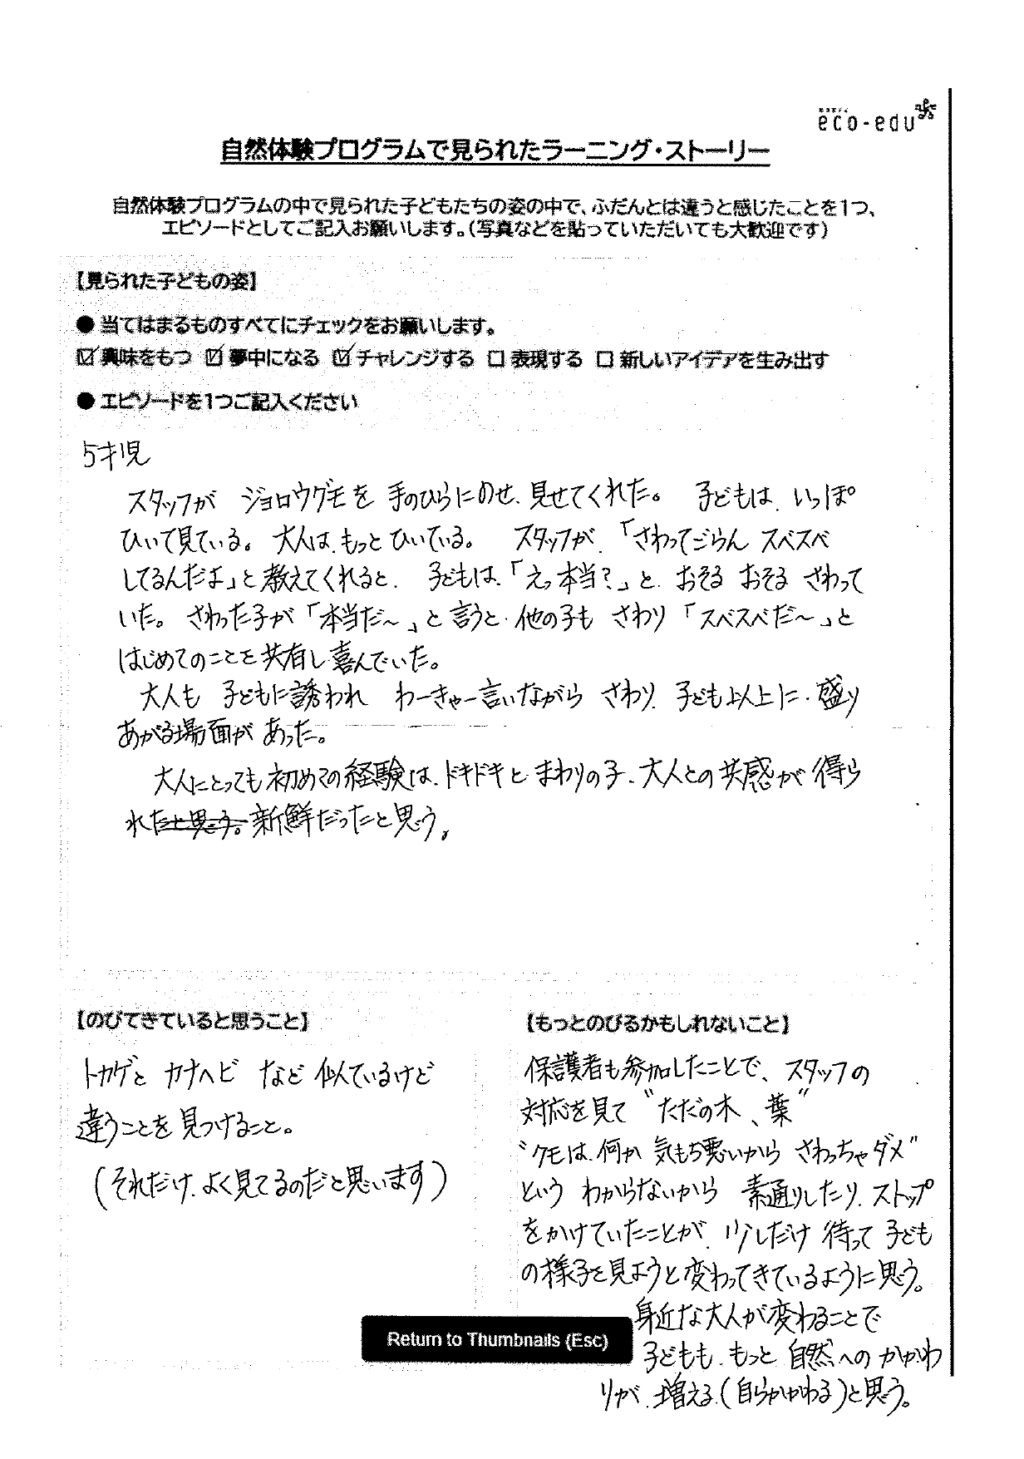 eco-edu
自然体験プログラムで見られたラーニング・ストーリー
自然体験プログラムの中で見られた子どもたちの姿の中で、ふだんとは違うと感じたことを1つ、
エピソードとしてご記入お願いします。(写真などを貼っていただいても大歓迎です)
【見られた子どもの姿】
● 当てはまるものすべてにチェックをお願いします。
☑ 興味をもつ ☑ 夢中になる ☑ チャレンジする □ 表現する □ 新しいアイデアを生み出す
● エピソードを1つご記入ください
5才児
スタッフが ジョロウグモを 手のひらにのせ、見せてくれた。 子どもは、いっぽ
ひいて見ている。大人は、もっと ひいている。 スタッフが、「さわってごらん スベスベ
してるんだよ」と教えてくれると、 子どもは、「えっ本当?」と、おそる おそる さわって
いた。 さわった子が「本当だ～」と言うと、他の子も さわり「スベスベだ～」と
はじめてのことを共有し喜んでいた。
大人も 子どもに誘われ わーきゃー言いながら さわり、子ども以上に、盛り
あがる場面が あった。
大人にとっても初めての経験は、ドキドキと まわりの子、大人との共感が 得ら
れたと思う。新鮮だったと思う。
【のびてきていると思うこと】
トカゲと カナヘビ など 似ているけど
違うことを見つけること。
(それだけ、よく見てるのだと思います)
【もっとのびるかもしれないこと】
保護者も参加したことで、スタッフの
対応を見て “ただの木、葉”
“クモは、何か 気もち悪いから さわっちゃダメ”
という わからないから 素通りしたり、ストップ
をかけていたことが、少しだけ 待って 子ども
の様子を見ようと変わってきているように思う。
身近な大人が変わることで
Return to Thumbnails (Esc)
子どもも、もっと 自然への かかわ
りが、増える(自らかかわる)と思う。